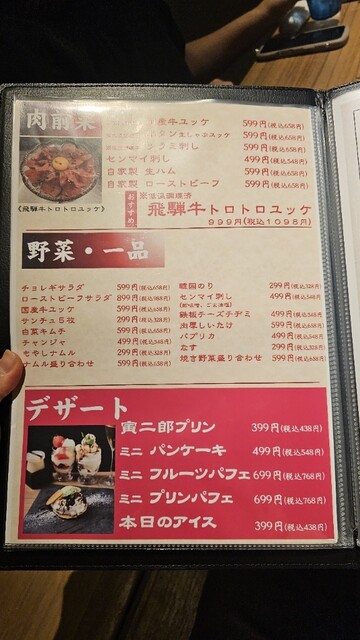 肉前菜
産牛ユッケ 599円(税込658円)
タン生しゃぶユッケ 599円(税込658円)
ラミ刺し 599円(税込658円)
センマイ刺し 499円(税込548円)
自家製 生ハム 599円(税込658円)
自家製 ローストビーフ 599円(税込658円)
おすすめ
飛騨牛トロトロユッケ
999円(税込1098円)
《飛騨牛トロトロユッケ》
野菜・一品
チョレギサラダ 599円(税込658円)
ローストビーフサラダ 899円(税込988円)
国産牛ユッケ 599円(税込658円)
サンチュ5枚 299円(税込328円)
白菜キムチ 599円(税込658円)
チャンジャ 499円(税込548円)
もやしナムル 299円(税込328円)
ナムル盛り合わせ 599円(税込658円)
韓国のり 299円(税込328円)
センマイ刺し 499円(税込548円)
鉄板チーズチヂミ 499円(税込548円)
肉厚しいたけ 599円(税込658円)
パプリカ 499円(税込548円)
なす 299円(税込328円)
焼き野菜盛り合わせ 599円(税込658円)
デザート
寅二郎プリン 399円(税込438円)
ミニ パンケーキ 499円(税込548円)
ミニ フルーツパフェ 699円(税込768円)
ミニ プリンパフェ 699円(税込768円)
本日のアイス 399円(税込438円)